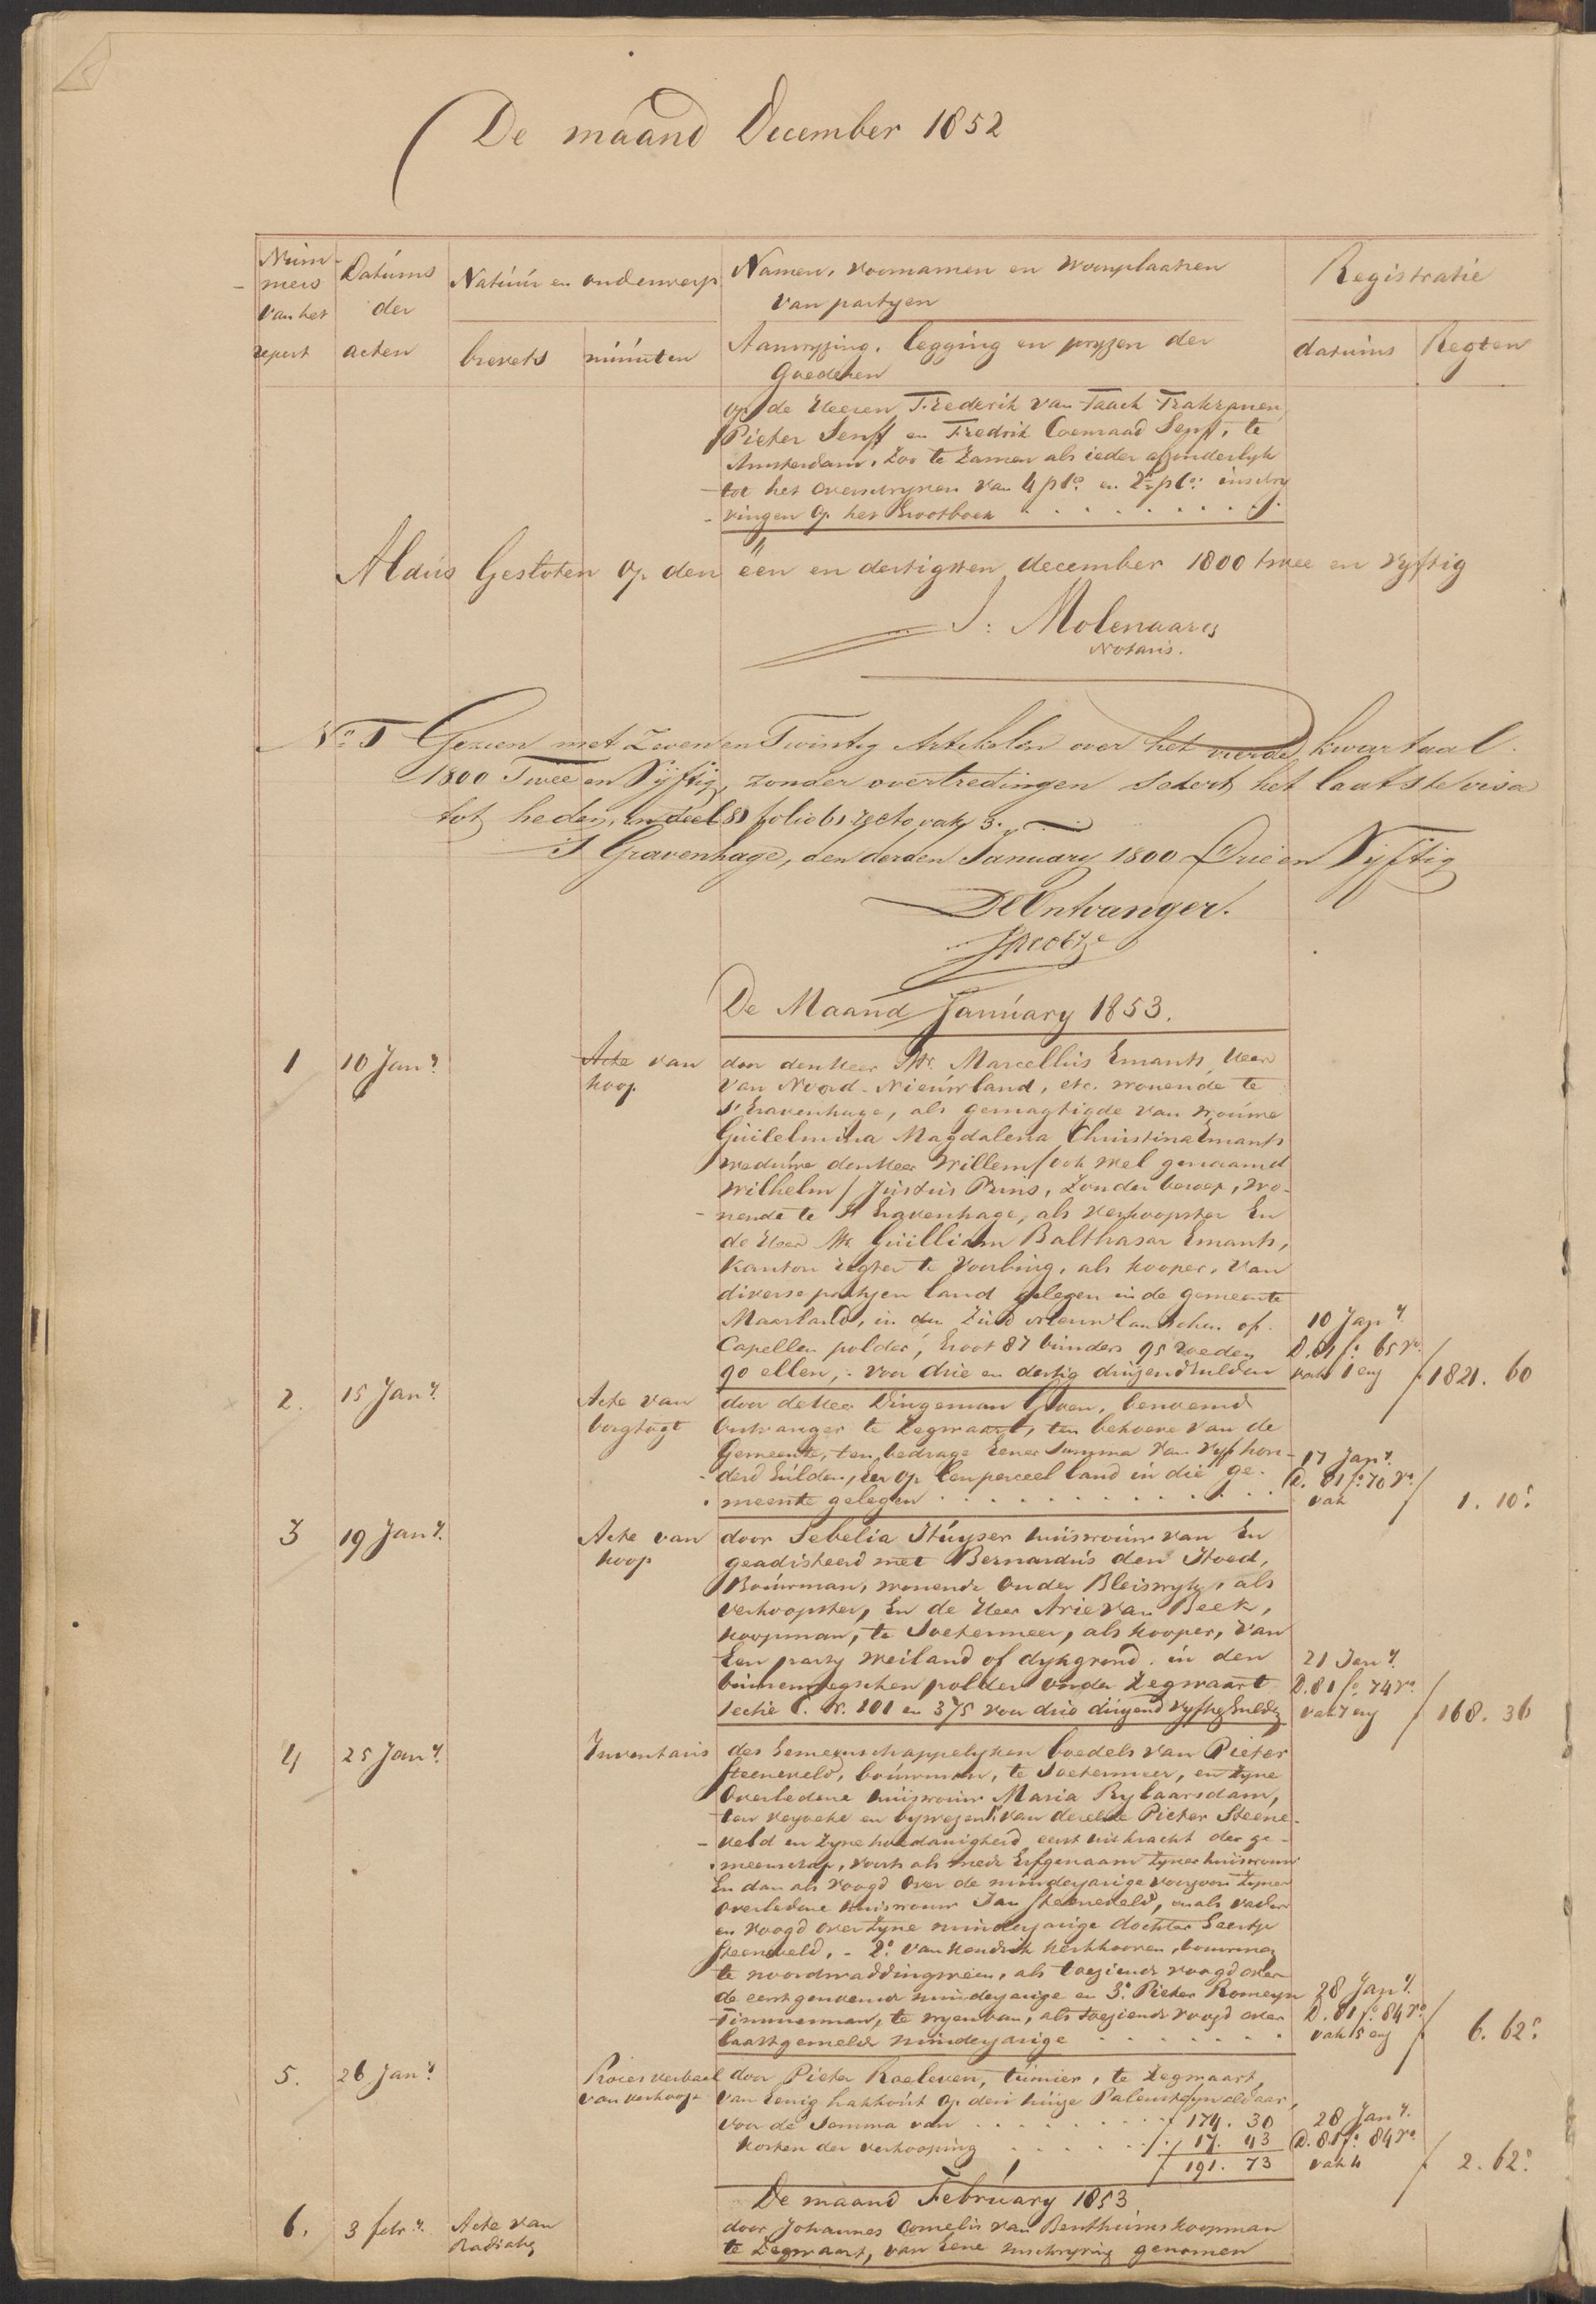 De maand December 1852
Num-
mers
van het
repert
Datums
der
acten
Natuur en onderwerp
brevets
minuten
Namen, voornamen en woonplaatsen
van partyen
Aanwyzing, legging en pryzen der
Goederen
Registratie
datums
Regten
op de Heeren Frederik van Taack Trakranen,
Pieter Senff en Fredrik Coenraad Senff, te
Amsterdam, zoo te zamen als ieder afzonderlyk
tot het overschryven van 4 pCo. en 2½ pCo. inschry
vingen op het Grootboek
Aldus Gesloten op den een en dertigsten december 1800 twee en vyftig
J: Molenaar
Notaris.
No. 1 Gezien met Zeven en Twintig Artikelen over het vierde kwartaal
1800 Twee en Vyftig, zonder overtredingen sedert het laatste visa
tot heden, in deel 81 folio 61 recto vak 3.
's Gravenhage, den derden January 1800 Drie en Vyftig
De Ontvanger.
De Maand January 1853.
1
10 Jany.
Acte van
koop
door den Heer Mr. Marcellus Emants, Heer
van Noord-Nieuwland, etc. wonende te
's Gravenhage, als gemagtigde van vrouwe
Guilelmina Magdalena Christina Emants
weduwe den Heer Willem / ook wel genaamd
Wilhelm / Justus Prins, zonder beroep, wo-
nende te 's Gravenhage, als verkoopster En
de Heer Mr. Guilliam Balthasar Emants,
Kanton regter te Voorburg, als kooper, van
diverse partyen land gelegen in de gemeente
Maasland, in den Zuid nieuwlandschen of
Capellen polder, Groot 87 bunders 95 roeden
90 ellen, voor drie en dertig duizend Gulden
10 Jany.
D. 81 fo. 65 ro.
vak 1 env
f 1821. 60
2.
15 Jany.
Acte van
borgtogt
door de Heer Dingeman Goven, benoemd
Ontvanger te Zegwaart, ten behoeve van de
Gemeente, ten bedrage Eener Somma van Vyf hon-
derd Gulden, en op Een perceel land in die ge-
meente gelegen
17 Jany.
D. 81 fo. 70 ro.
vak
f 1. 10.
3
19 Jany.
Acte van
koop
door Sebelia Stuyser huisvrouw van En
geadsisteerd met Bernardus den Hoed,
Bouwman, wonende onder Bleiswyk, als
verkoopster, En de Heer Arie van Beek,
koopman, te Soetermeer, als kooper, van
Een party weiland of dykgrond in den
binnenwegschen polder onder Zegwaart
sectie C. N. 101 en 375 voor drie duizend vyftig Gulden
21 Jany.
D. 81 fo. 74 ro.
vak 7 env
f 168. 36
4
25 Jany.
Inventaris
des Gemeenschappelyken boedels van Pieter
Steeneveld, bouwman, te Soetermeer, en zyne
Overledene huisvrouw Maria Rylaarsdam,
ten verzoeke en bywezen 1o. van dezelve Pieter Steene-
veld en zyne hoedanigheid eerst uit kracht der ge-
meenschap, voorts als mede Erfgenaam zyner huisvrouw
En dan als voogd over de minderjarige voorzoon zyner
overledene huisvrouw Jan Steeneveld, en als vader
en voogd over zyne minderjarige dochter Geertje
Steeneveld, - 2o. van Hendrik Kerkhoven, bouwman
te noordwaddingsveen, als toeziende voogd over
de eerstgenoemde minderjarige en 3o. Pieter Romeyn
Timmerman, te , als toeziende voogd over
laastgemelde minderjarige
28 Jany.
D. 81 fo. 84 ro.
vak 5 env
f 6. 62.
5.
26 Jany.
Proces verbaal
van verkoop
door Pieter Roeleven, tuinier, te Zegwaart,
van Eenig hakhout op den huize Palensteyn aldaar,
voor de Somma van f 174. 30
Kosten der verkooping f 17. 43
f 191. 73
28 Jany.
D. 81 fo. 84 ro.
vak 4
f 2. 62.
De maand February 1853.
6.
3 febry.
Acte van
Radiatie
door Johannes Cornelis van Benthem koopman
te Zegwaart, van Eene inschryving genomen